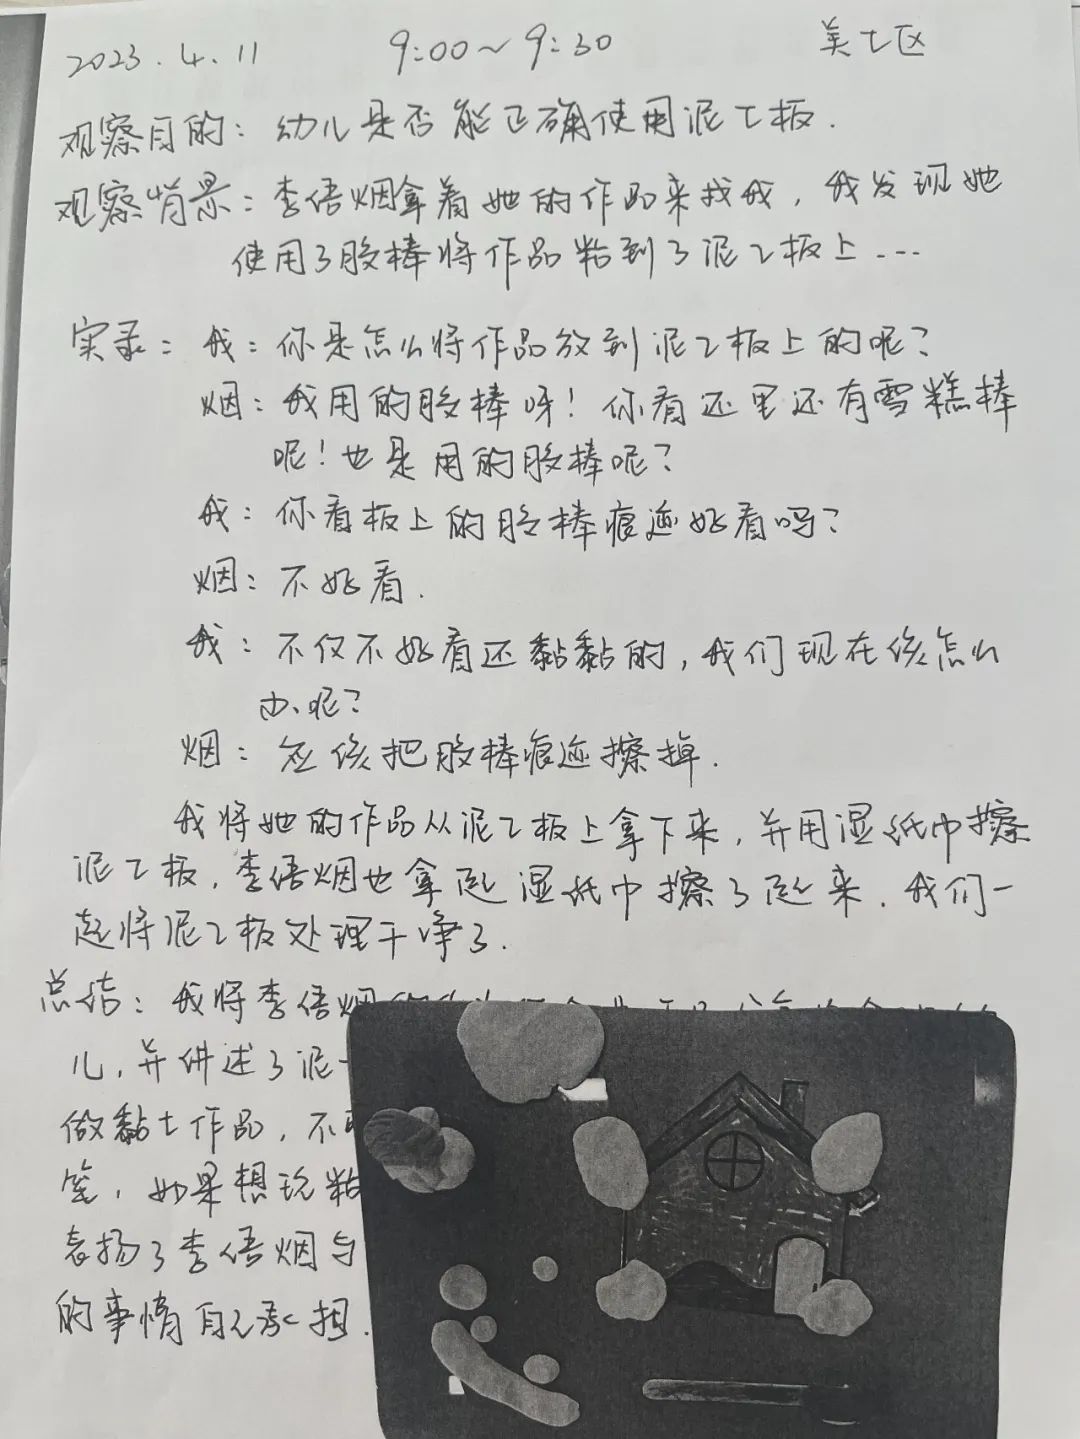 2023.4.11 9:00~9:30 美工区
观察目的：幼儿是否能正确使用泥工板.
观察背景：李俉烟拿着她的作品来找我，我发现她
使用了胶棒将作品粘到了泥工板上....
实录：我：你是怎么将作品放到泥工板上的呢？
烟：我用的胶棒呀！你看这里还有雪糕棒
呢！也是用的胶棒呢？
我：你看板上的胶棒痕迹好看吗？
烟：不好看.
我：不仅不好看还黏黏的，我们现在该怎么
办呢？
烟：应该把胶棒痕迹擦掉.
我将她的作品从泥工板上拿下来，并用湿纸巾擦
泥工板，李俉烟也拿起湿纸巾擦了起来.我们一
起将泥工板处理干净了.
总结：我将李俉烟的
儿，并讲述了泥
做黏土作品，不
笔，如果想玩粘
表扬了李俉烟与
的事情自己承担.